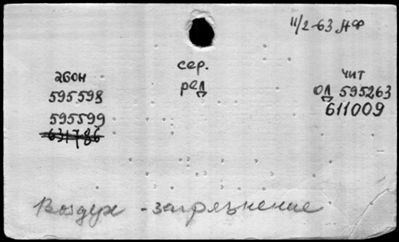 11/2-63 НФ
абон
595598
595599
631786
сер.
ред
чит
од 595263
611009
Воздух - загрязнение